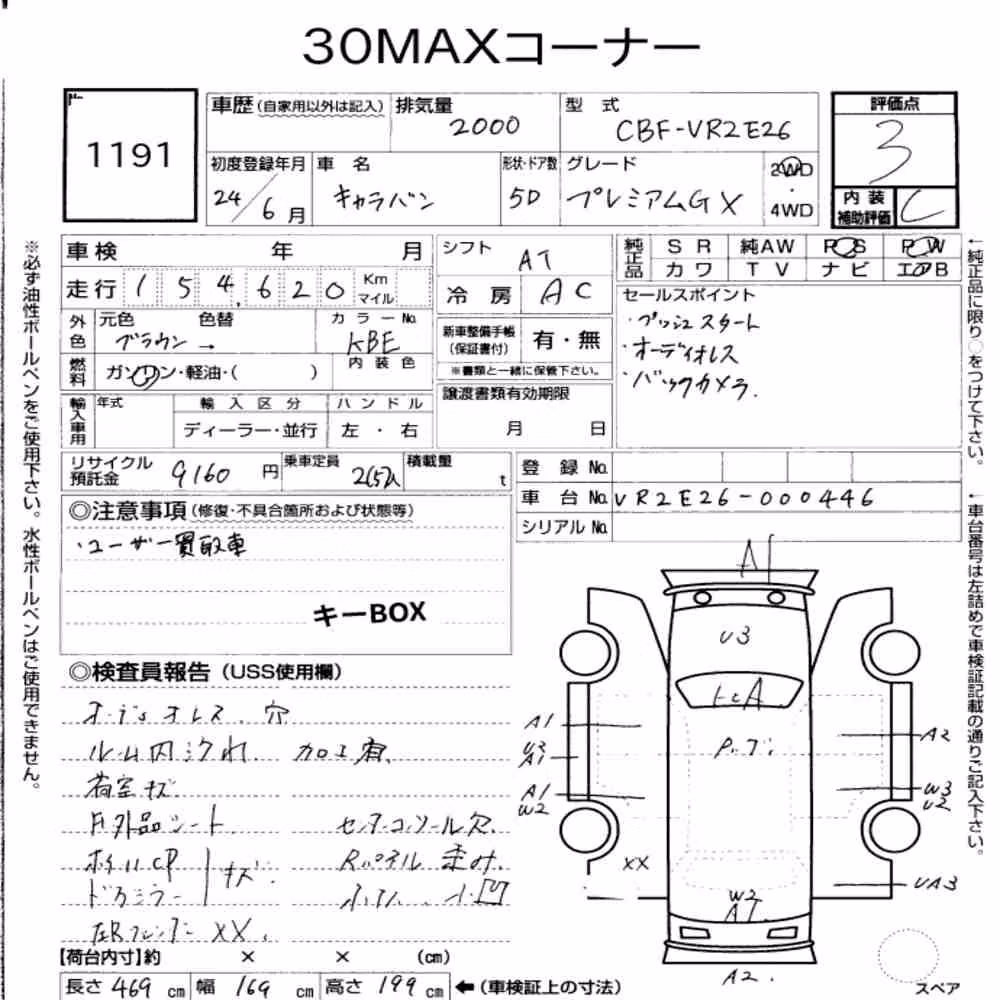 30MAXコーナー
1191
車歴(自家用以外は記入) 排気量 2000 型式 CBF-VR2E26
評価点 3
初度登録年月 24/6月 車名 キャラバン 形状・ドア数 5D グレード プレミアムGX 2WD・4WD
内装補助評価 C
車検 年 月
走行 154,620 Km マイル
外色 元色 ブラウン → 色替 カラーNo. KBE
燃料 ガソリン・軽油・( ) 内装色
輸入車用 年式 輸入区分 ディーラー・並行 ハンドル 左・右
シフト AT
冷房 AC
新車整備手帳(保証書付) 有・無
※書類と一緒に保管下さい。
譲渡書類有効期限 月 日
純正品 SR 純AW PS PW
カワ TV ナビ エアB
セールスポイント
・プッシュスタート
・オーディオレス
・バックカメラ.
リサイクル預託金 9160円 乗車定員 2(5)人 積載量 t
登録No.
車台No. VR2E26-000446
シリアルNo.
◎注意事項(修復・不具合箇所および状態等)
・ユーザー買取車
キーBOX
◎検査員報告(USS使用欄)
オーデョオレス.穴
ルーム内汚れ. 加工有.
荷室キズ.
円外品シート センターコンソール穴.
ホイルCP キズ. Rパネル 歪み.
ドアミラー 小凹
左Rフェンダー XX.
【荷台内寸】約 × × (cm)
長さ 469 cm 幅 169 cm 高さ 199 cm ←(車検証上の寸法)
A1
U3
A
P.ブ.
A1
U2
A1
A1
W2
XX
A2
W3
U2
UA3
W2
A1.
A2.
スペア
※必ず油性ボールペンをご使用下さい。水性ボールペンはご使用できません。
←純正品に限り○をつけて下さい。
←車台番号は左詰めで車検証記載の通りご記入下さい。